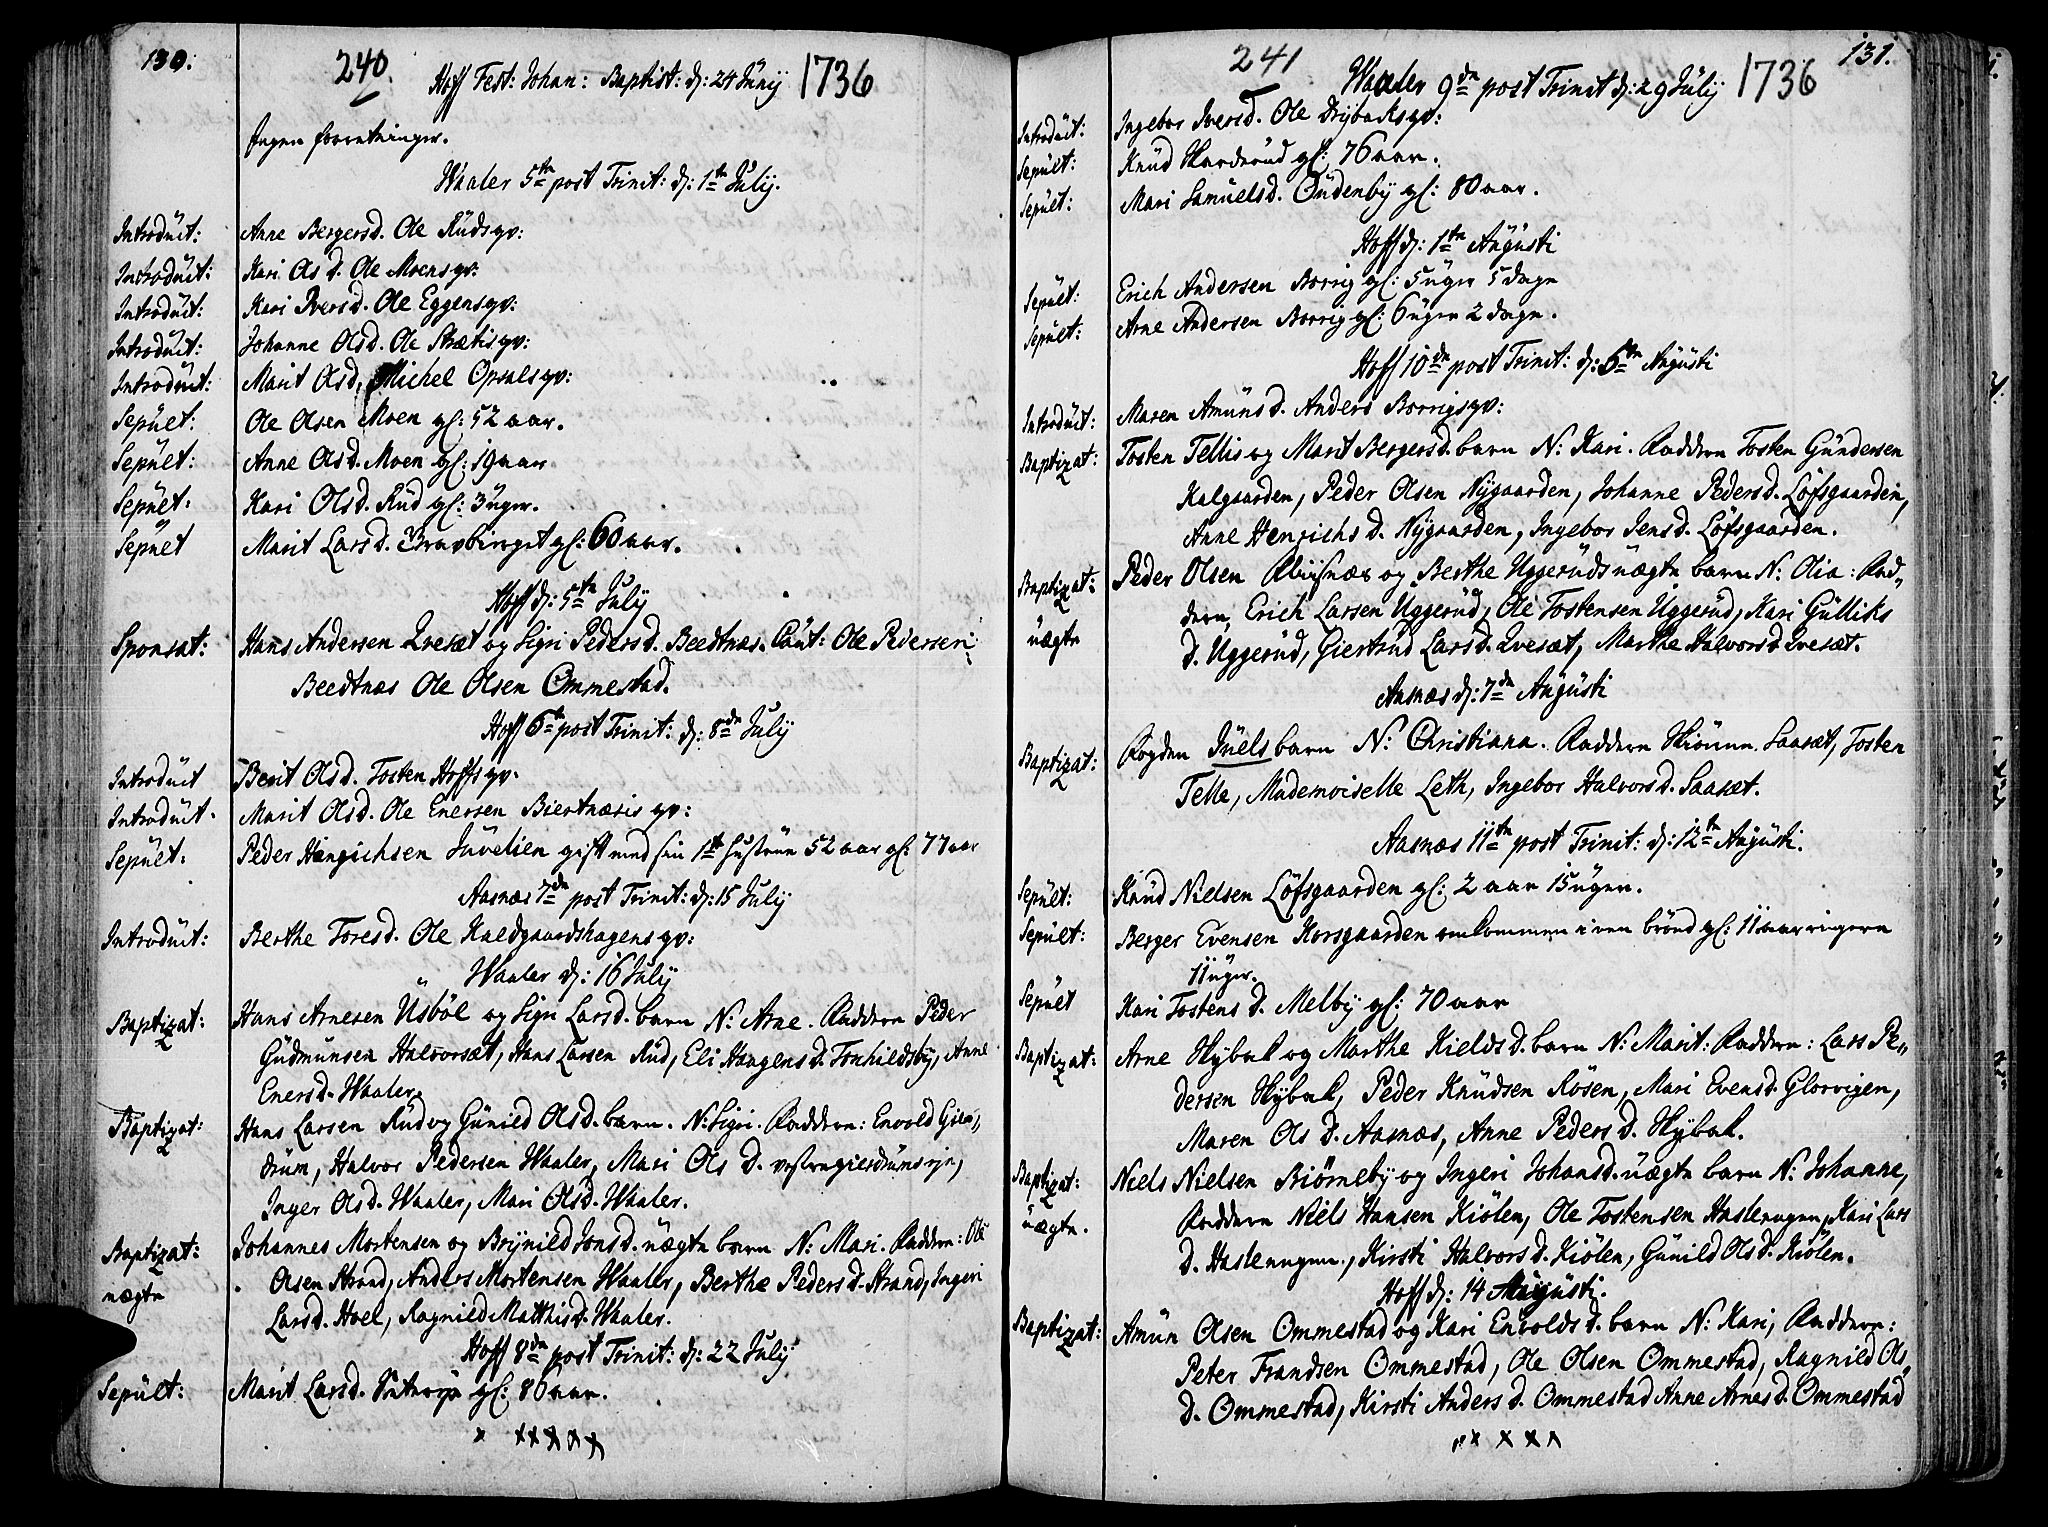 130.
240.
Hoff Fest: Johan: Baptist: d: 24 Junij 1736
Ingen forretninger.
Waaler 5te post Trinit: d: 1te Julij.
Introduit: Anne Bergersd. Ole Rüds qv:
Introduit: Kari Ols d. Ole Moens qv:
Introduit: Kari Ivers d. Ole Eggens qv:
Introduit: Johanne Olsd. Ole Strætis qv:
Introduit: Marit Olsd. Michel Opsals qv:
Sepult: Ole Olsen Moen gl: 52 aar.
Sepult: Anne Olsd. Moen gl: 19 aar
Sepult: Kari Olsd. Rud gl: 3 uger.
Sepult Marit Lars d. gl: 60 aar.
Hoff d: 5te Julij
Sponsat: Hans Andersen Qvesæt og Sigri Peders d. Beedtnæs. Caut: Ole Pedersen
Beedtnæs Ole Olsen Ommestad.
Hoff 6te post Trinit: d: 8de Julij
Introduit Berit Olsd. Tosten Hoffs qv:
Introduit. Marit Olsd. Ole Enersen Biertnæsis qv:
Sepult: Peder Hengichsen Juvelien gift med sin 1te hustrue 52 aar gl: 77 aar
Aasnæs 7de post Trinit: d: 15 Julij
Introduit: Berthe Toresd. Ole Kaldgaardshagens qv:
Waaler d: 16 Julij
Baptizat: Hans Arnesen Usböl og Sigri Larsd. barn N: Arne. Faddere Peder
Gudmunsen Halvorsæt, Hans Larsen Rud, Eli Haagens d. Tonhildsby, Anne
Enersd. Waaler.
Baptizat: Hans Larsen Rud og Gunild Olsd. barn. N: Sigri. Faddere: Envold Gier„
drum, Halvor Pedersen Waaler, Mari Ols D. vestregierdrums eje,
Inger Olsd. Waaler, Mari Olsd. Waaler.
Baptizat: Johannes Mortensen og Brynild Jonsd. uægte barn N: Mari. Faddere: Ole
uægte Olsen Strand, Anders Mortensen Waaler, Berthe Peders d. Strand, Ingeri
Larsd. Hoel, Ragnild Matthisd. Waaler.
Hoff 8de post Trinit: d: 22 Julij
Sepult: Marit Larsd. gl: 86 aar.
x x x x x x
131.
241
Waaler 9de post Trinit d: 29 Julij 1736
Introduit: Ingebor Iversd. Ole Dybaks qv:
Sepult: Knud Skarderud gl: 76 aar.
Sepult: Mari Samuelsd. Oudenby gl: 80 aar.
Hoff d: 1te Augusti
Sepult: Erich Andersen Borrig gl: 5 uger 5 dage
Sepult: Arne Andersen Borrig gl: 6 uger 2 dage.
Hoff 10de post Trinit: d: 5te Augusti
Introduit: Maren Amuns d. Anders Borrigs qv:
Baptizat: Tosten Tellis og Marit Bergersd. barn N: Kari. Faddere Tosten Gundersen
Kalgaarden, Peder Olsen Nygaarden, Johanne Pedersd. Löfsgaarden,
Anne Henrichs d. Nygaarden, Ingebor Jens d. Löfsgaarden.
Baptizat: Peder Olsen og Berthe Uggeruds uægte barn N: Olia: Fad„
uægte dere, Erich Larsen Uggerud, Ole Tostensen Uggerud, Kari Gulliks
d. Uggerud, Giertrud Larsd. Qvesæt, Marthe Halvorsd. Qvesæt.
Aasnæs d: 7de Augusti
Baptizat: Fogden Juels barn N: Christiana. Faddere Saaset, Tosten
Telle, Mademoiselle Leth, Ingebor Halvorsd. Saaset.
Aasnæs 11te post Trinit: d: 12te Augusti.
Sepult: Knud Nielsen Löfsgaarden gl: 2 aar 15 uger.
Sepult: Berger Evensen Korsgaarden omkommen i en brönd gl: 11 aar
11 uger.
Sepult Kari Tostens d. Melby gl: 70 aar
Baptizat: Arne Skybak og Marthe Kields D. barn N: Marit: Faddere: Lars Pe„
dersen Skybak, Peder Knudsen Rösen, Mari Evensd. Glorvigen,
Maren Ols D. Aasnæs, Anne Peders D. Skybak.
Baptizat: Niels Nielsen Biörneby og Ingeri Johansd. uægte barn N: Johanne,
uægte. Faddere Niels Hansen Kiölen, Ole Tostensen Haslerugen, Kari Lars
d. Haslerugen, Kirsti Halvors d. Kiölen, Gunild Ols d. Kiölen.
Hoff d: 14 Augusti.
Baptizat: Amun Olsen Ommestad og Kari Envolds d. barn N: Kari, Faddere:
Peter Frandsen Ommestad, Ole Olsen Ommestad, Ragnild Ols
d. Ommestad, Kirsti Anders d. Ommestad Anne Arnes d. Ommestad
x x x x